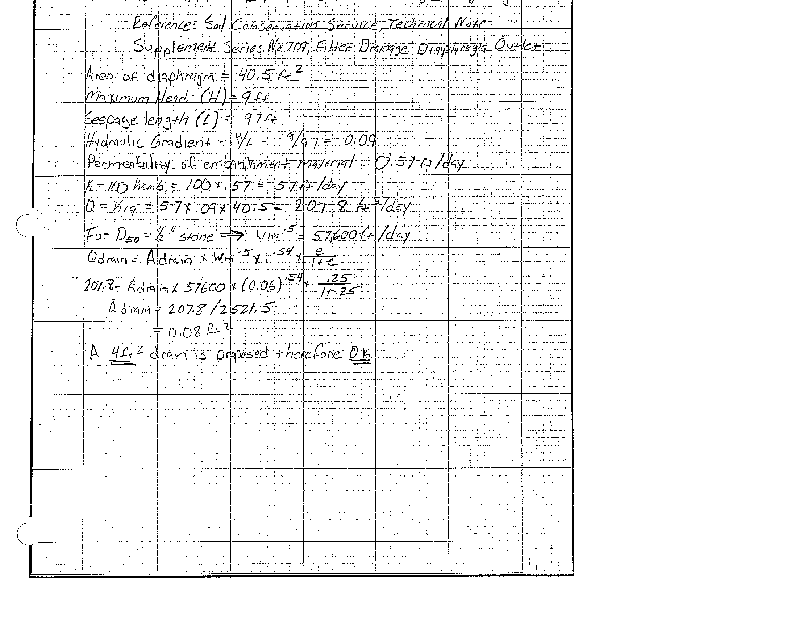 Reference: Soil Conservation Service, Technical Note
Supplement Series No 709, Filter Drainage Diaphragm Outlet
Area of diaphragm = 40.5 ft²
Maximum Head (H) = 9 ft
Seepage length (L) = 97 ft
Hydraulic Gradient = H/L = 9/97 = 0.09
Permeability of embankment material = 0.57 ft/day
K = 100 = 100 x .57 = 57 ft/day
Q = kiA = 57 x .09 x 40.5 = 207.8 ft³/day
For D50 = ½" stone ⇒ Wm^.5 = 57600 ft/day
Qdrain = Adrain x Wm^.5 x i^.54 x e/1+e
207.8 = Adrain x 57600 x (0.06)^.54 x .25/1+.25
Adrain = 207.8/2521.5
= 0.08 ft²
A 4ft² drain is proposed therefore OK